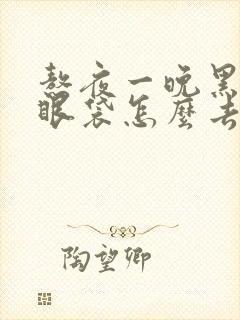 熬夜一晚黑
眼袋怎麼去
陶望卿